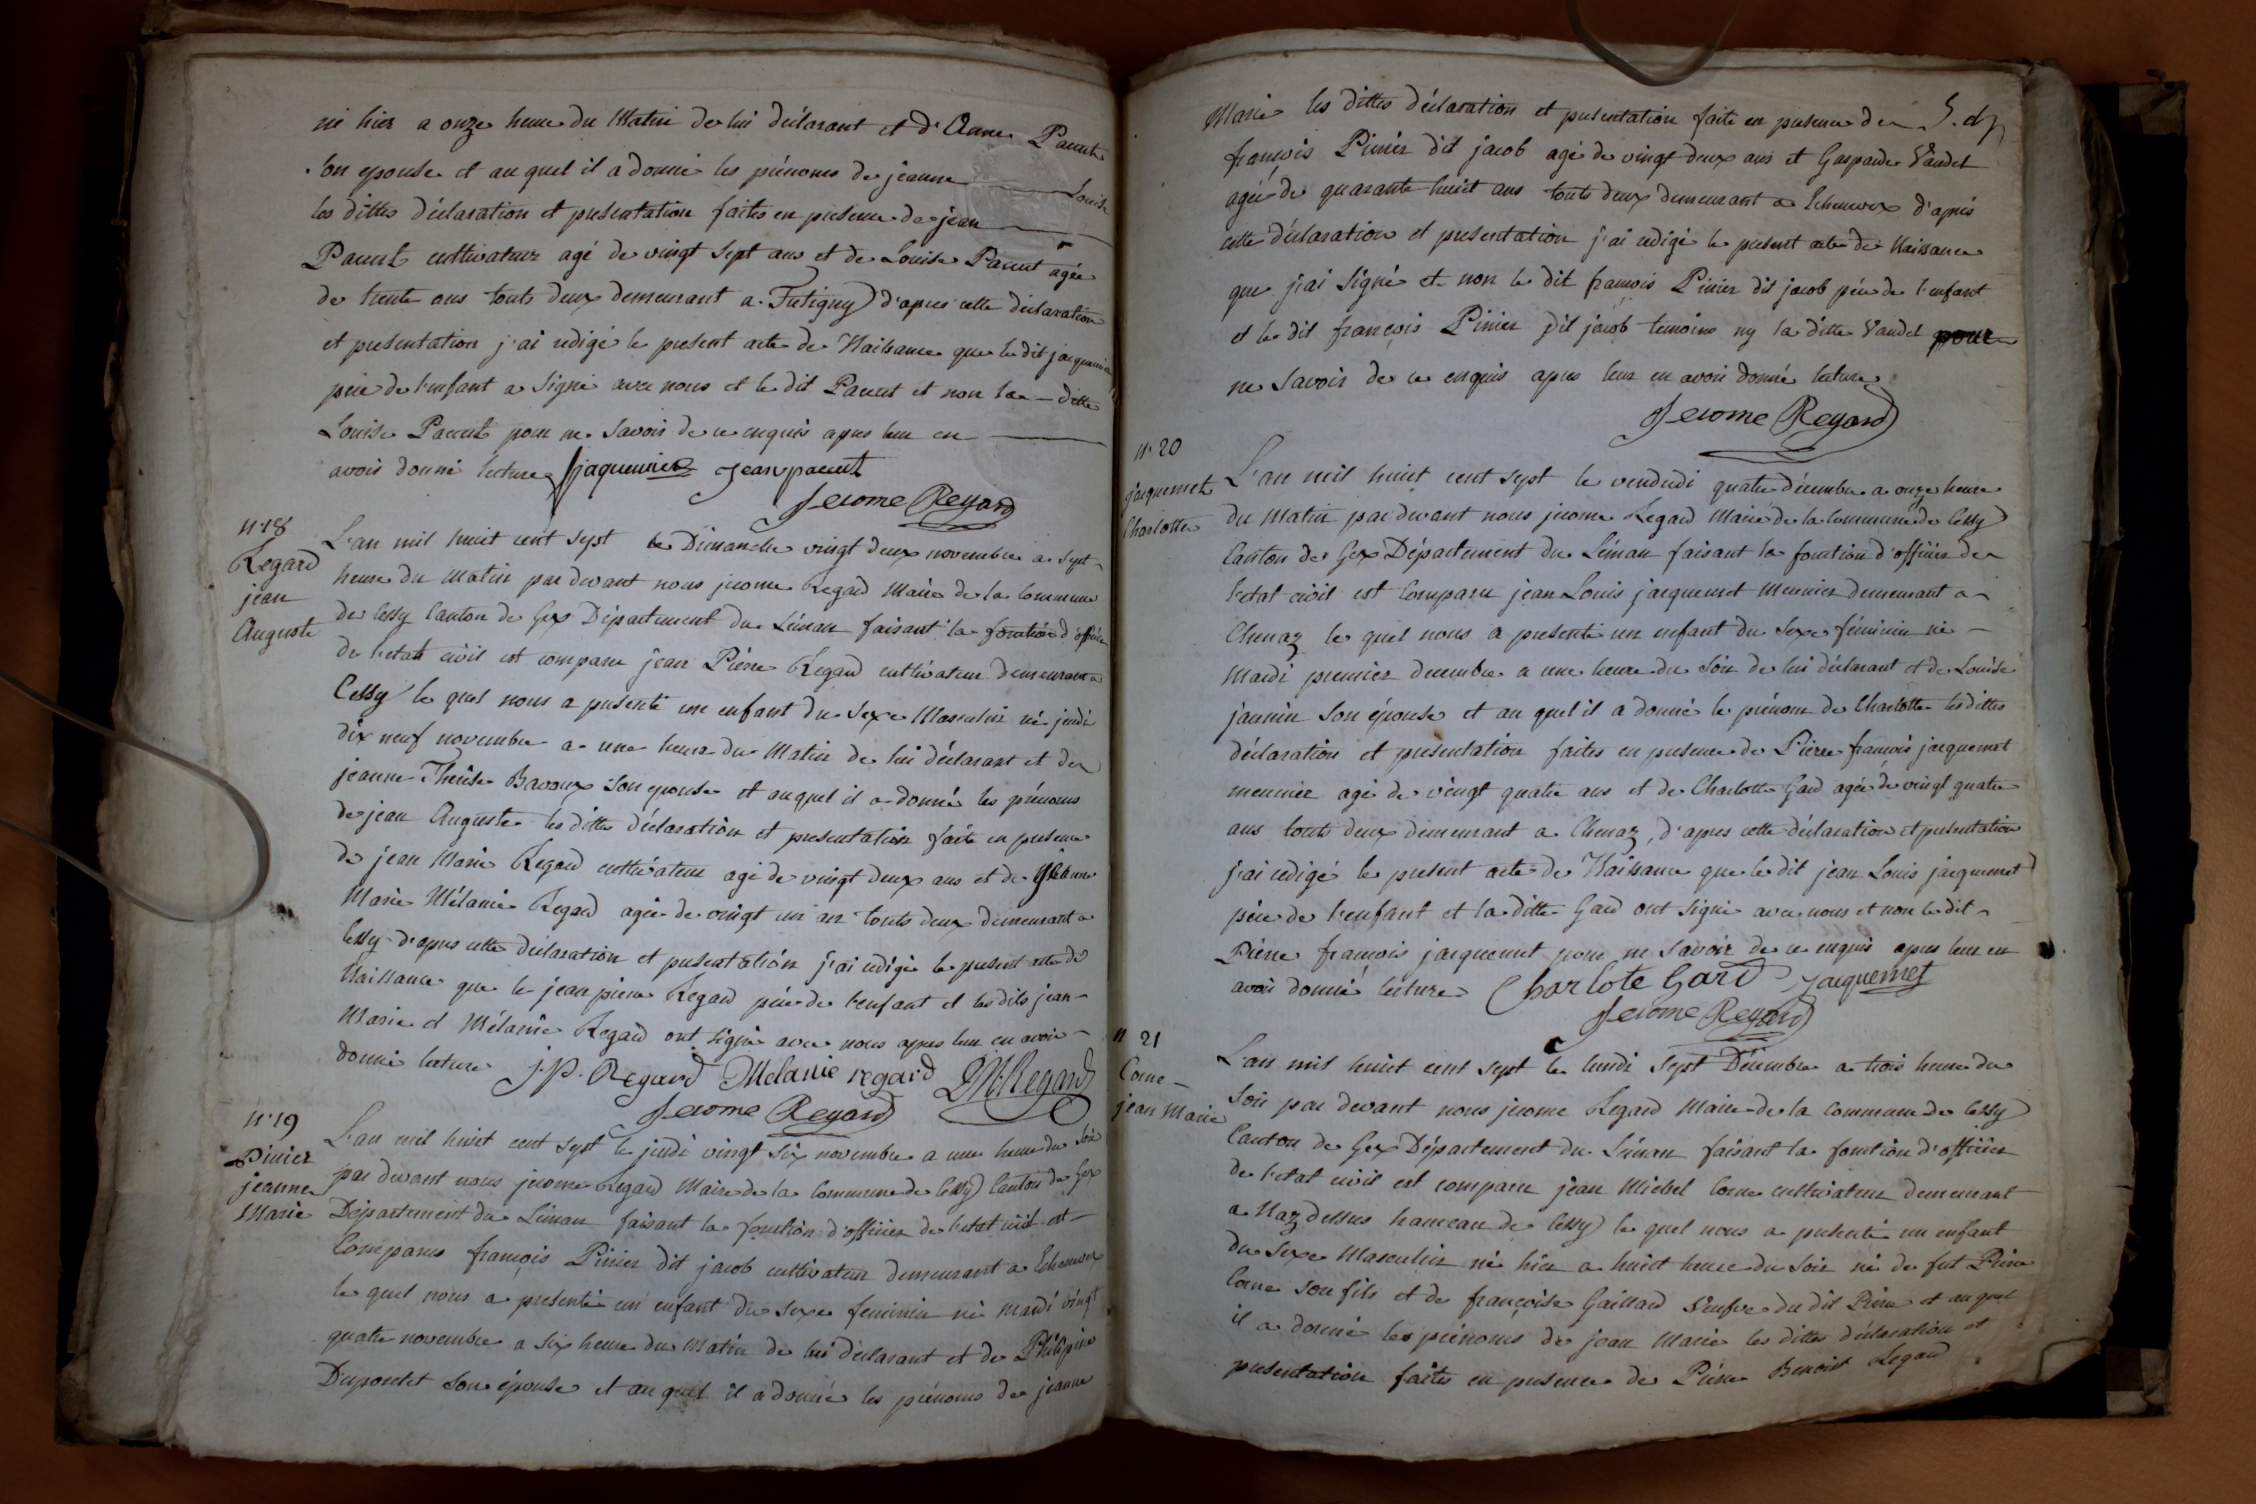 né hier a onze heure du Matin de lui déclarant et d'Anne Pacut
Son epouse et au quel il a donné les prénoms de jeanne Louise
les dittes déclaration et presentation faites en presence de jean
Pacut cultivateur agé de vingt sept ans et de Louise Pacut agée
de trente ans touts deux demeurant a Tutigny d'apres cette déclaration
et presentation j'ai redigé le present acte de Naissance que le dit jaquemier
père de l'enfant a signé avec nous et le dit Pacut et non la ditte
Louise Pacut pour ne savoir de ce enquis apres leur en
avoir donné lecture jaquemier jean pacut
Jerome Regard
n° 18
Regard
jean
Auguste
L'an mil huit cent sept le Dimanche vingt deux novembre a sept
heure du matin par devant nous jerome Regard Maire de la Commune
de Cessy Canton de Gex Département du Léman faisant la fonction d'officier
de l'etat civil est comparu jean Pierre Regard cultivateur demeurant a
Cessy le quel nous a presenté un enfant du sexe Masculin né jeudi
dix neuf novembre a une heure du Matin de lui déclarant et de
jeanne Thérése Bavoux son epouse et auquel il a donné les prénoms
de jean Auguste les dittes déclaration et presentation faite en presence
de jean Marie Regard cultivateur agé de vingt deux ans et de
Marie Mélanie Regard agée de vingt un an touts deux demeurant a
Cessy d'apres cette déclaration et presentation j'ai redigé le present acte de
Naissance que le jean pierre Regard père de l'enfant et les dits jean
Marie et Mélanie Regard ont signé avec nous apres leur en avoir
donné lecture J.P. Regard Melanie regard JM Regard
Jerome Regard
n° 19
Pinier
jeanne
Marie
L'an mil huit cent sept le jeudi vingt six novembre a une heure du soir
par devant nous jerome Regard Maire de la Commune de Cessy Canton de Gex
Département du Léman faisant la fonction d'officier de l'etat civil est
Comparus françois Pinier dit jacob cultivateur demeurant a Echenevex
le quel nous a presenté un enfant du sexe feminin né mardi vingt
quatre novembre a six heure du Matin de lui déclarant et de Philipine
Dupontet son épouse et au quel il a donné les prénoms de jeanne
Marie les dittes déclaration et presentation faite en presence de
françois Pinier dit jacob agé de vingt deux ans et Gasparde Vaudel
agée de quarante huit ans touts deux demeurant a Echenevex d'après
cette déclaration et presentation j'ai redigé le present acte de Naissance
que j'ai signé et non le dit françois Pinier dit jacob père de l'enfant
et le dit françois Pinier dit jacob temoins ny la ditte Vaudel pour
ne savoir de ce enquis apres leur en avoir donné lecture
Jerome Regard
n° 20
jacquemet
Charlotte
L'an mil huit cent sept le vendredi quatre décembre a onze heure
du Matin par devant nous jerome Regard Maire de la Commune de Cessy
Canton de Gex Département du Léman faisant la fonction d'officier de
l'etat civil est Comparu jean Louis jacquemet Meunier demeurant a
Chenaz le quel nous a presenté un enfant du sexe féminin né
Mardi premier decembre a une heure du soir de lui déclarant et de Louise
jannin son épouse et au quel il a donné le prénom de Charlotte les dittes
déclaration et presentation faites en presence de Pierre françois jacquemet
meunier agé de vingt quatre ans et de Charlotte Gard agée de vingt quatre
ans touts deux demeurant a Chenaz, d'apres cette déclaration et presentation
j'ai redigé le present acte de Naissance que le dit jean Louis jacquemet
père de l'enfant et la ditte Gard ont signé avec nous et non le dit
Pierre françois jacquemet pour ne savoir de ce enquis apres leur en
avoir donné lecture Charlote Gard Jaquemet
Jerome Regard
n 21
Corne
jean Marie
L'an mil huit cent sept le lundi sept Décembre a trois heure du
soir par devant nous jerome Regard Maire de la Commune de Cessy
Canton de Gex Département du Léman faisant la fonction d'officier
de l'etat civil est comparu jean Michel Corne cultivateur demeurant
a Naz dessus hameau de Cessy le quel nous a presenté un enfant
du sexe Masculin né hier a huit heure du soir né de fut Pierre
Corne son fils et de françoise Gaillard veufve du dit Pierre et au quel
il a donné les prénoms de jean Marie les dittes déclaration et
presentation faites en presence de Pierre Benoist Regard